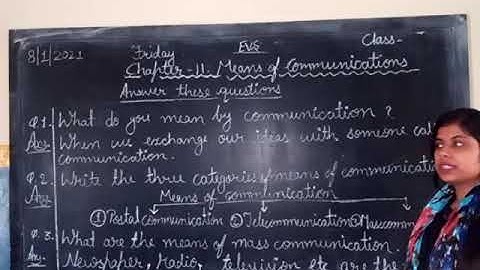 8/1/2021 Friday EVS Class-
Chapter-11 Means of Communications
Answer these questions
Q.1. What do you mean by communication?
Ans. When we exchange our ideas with someone
communication.
Q.2. Write the three categories of means of communication
Ans. Means of communication
① Postal communication ② Telecommunication ③ Mass
Q.3. What are the means of mass communication.
Ans. Newspaper, Radio, television etc are the